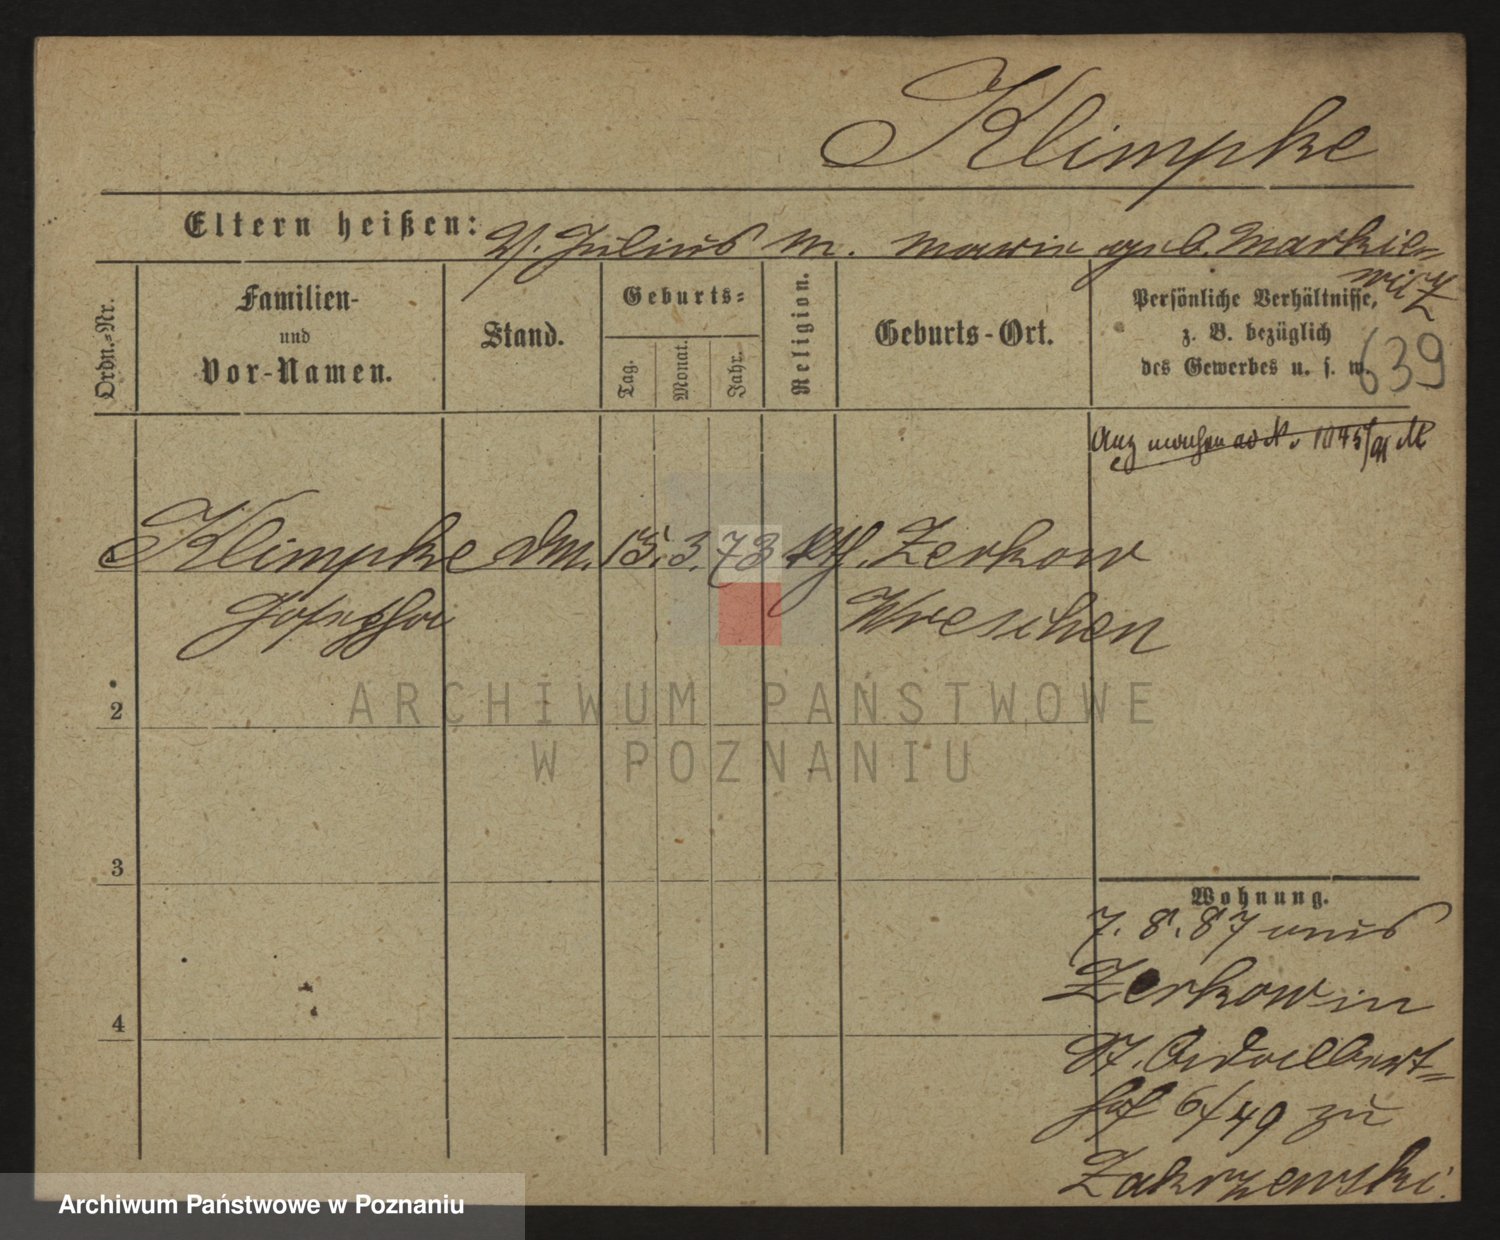 Klimpke
Eltern heißen: V. Julius M. Marie geb. Markie=
wicz
Ordn.-Nr.
Familien-
und
Vor-Namen.
Stand.
Geburts=
Tag.
Monat.
Jahr.
Religion.
Geburts-Ort.
Persönliche Verhältnisse,
z. B. bezüglich
des Gewerbes u. s. w.
639
1 Klimpke Dm. 15. 3. 73 kth. Zerkow
Josepha Wreschen
2
3
4
Wohnung.
7. 8. 87 aus
Zerkow in
St. Adalbert=
hof 6/49 zu
Zakrzewski.
ARCHIWUM PAŃSTWOWE
W POZNANIU
Archiwum Państwowe w Poznaniu